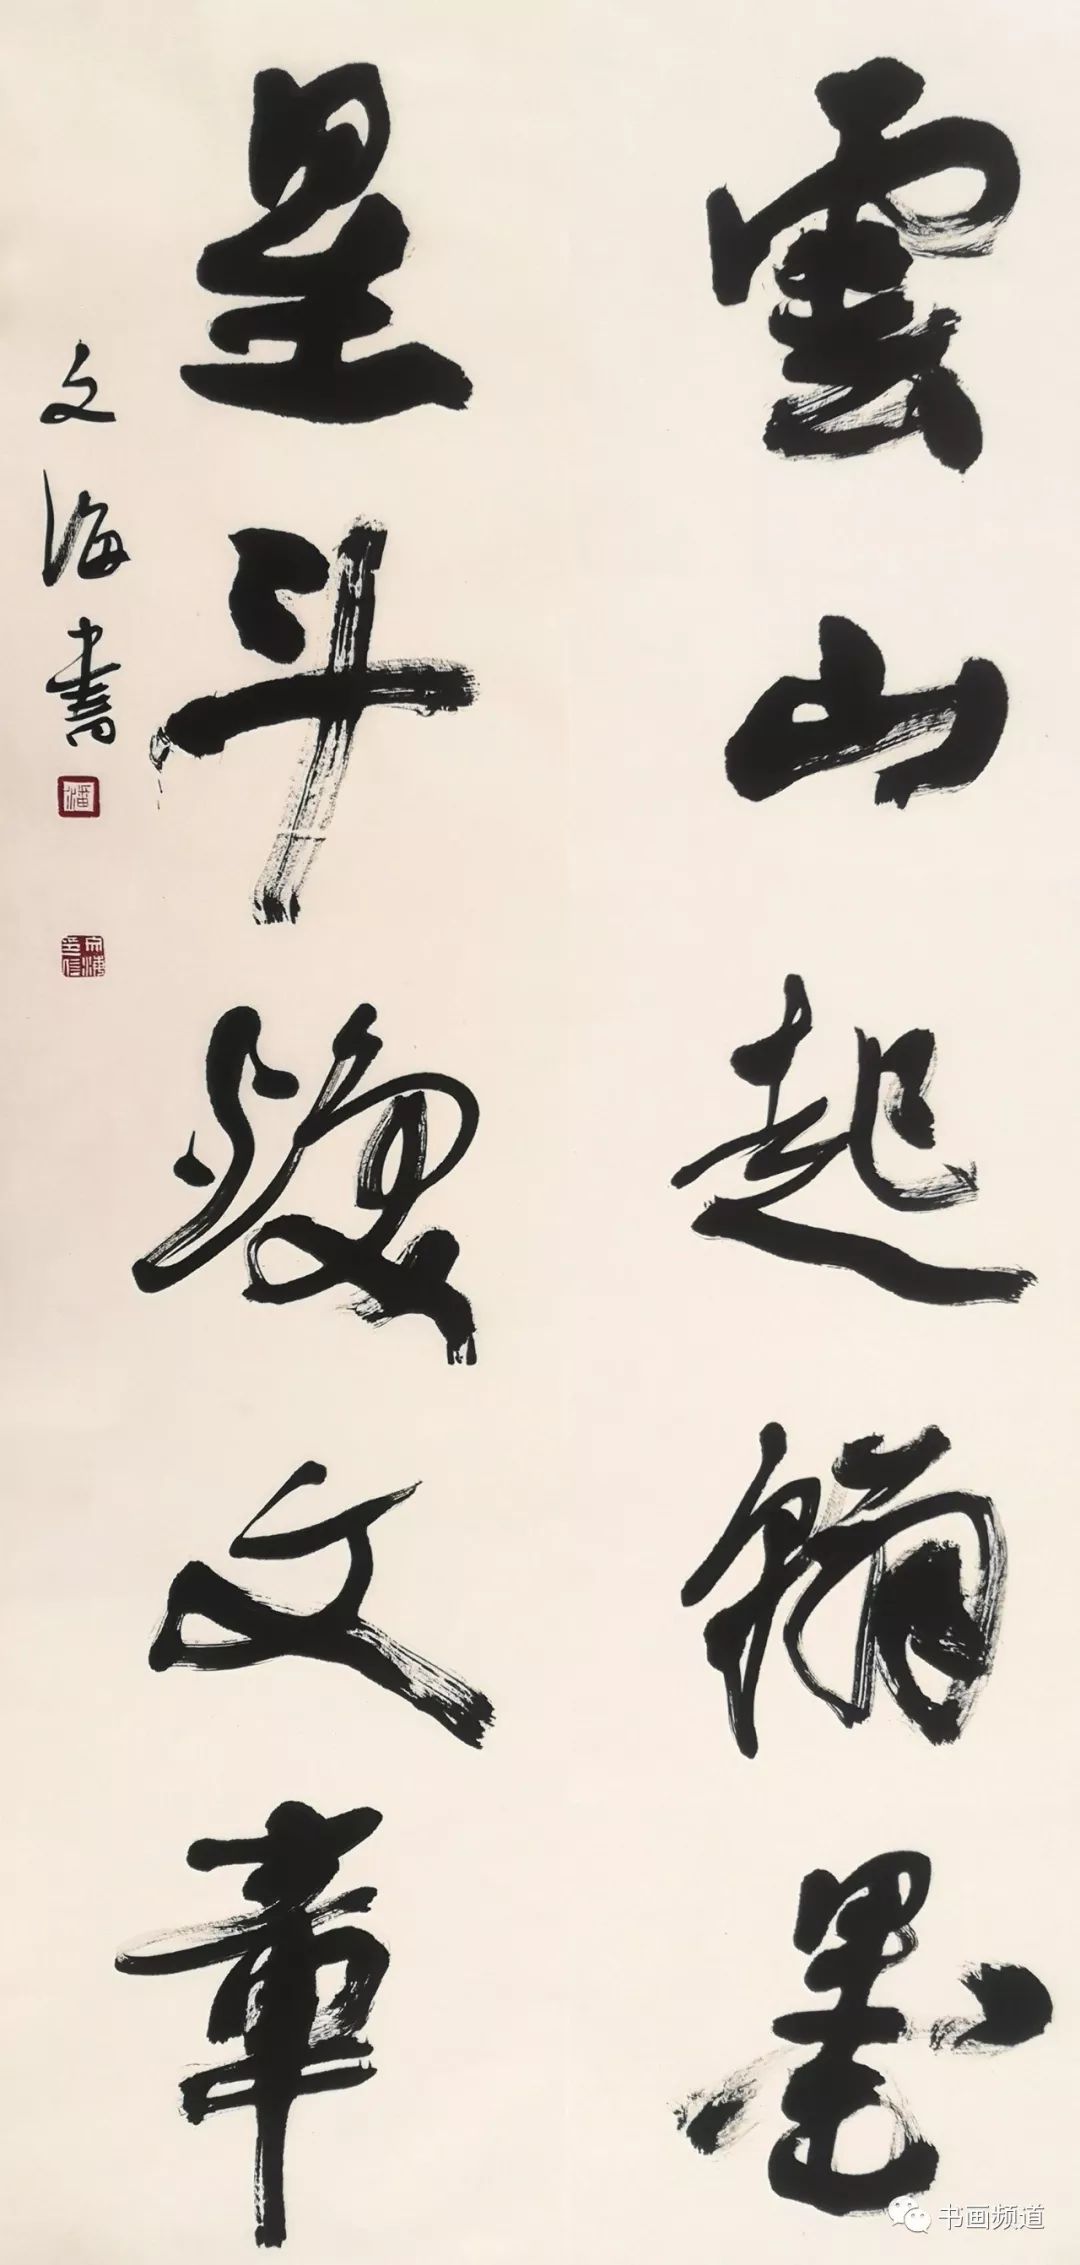 雲山起翰墨
星斗煥文章
文海書
潘
文海印信
书画频道